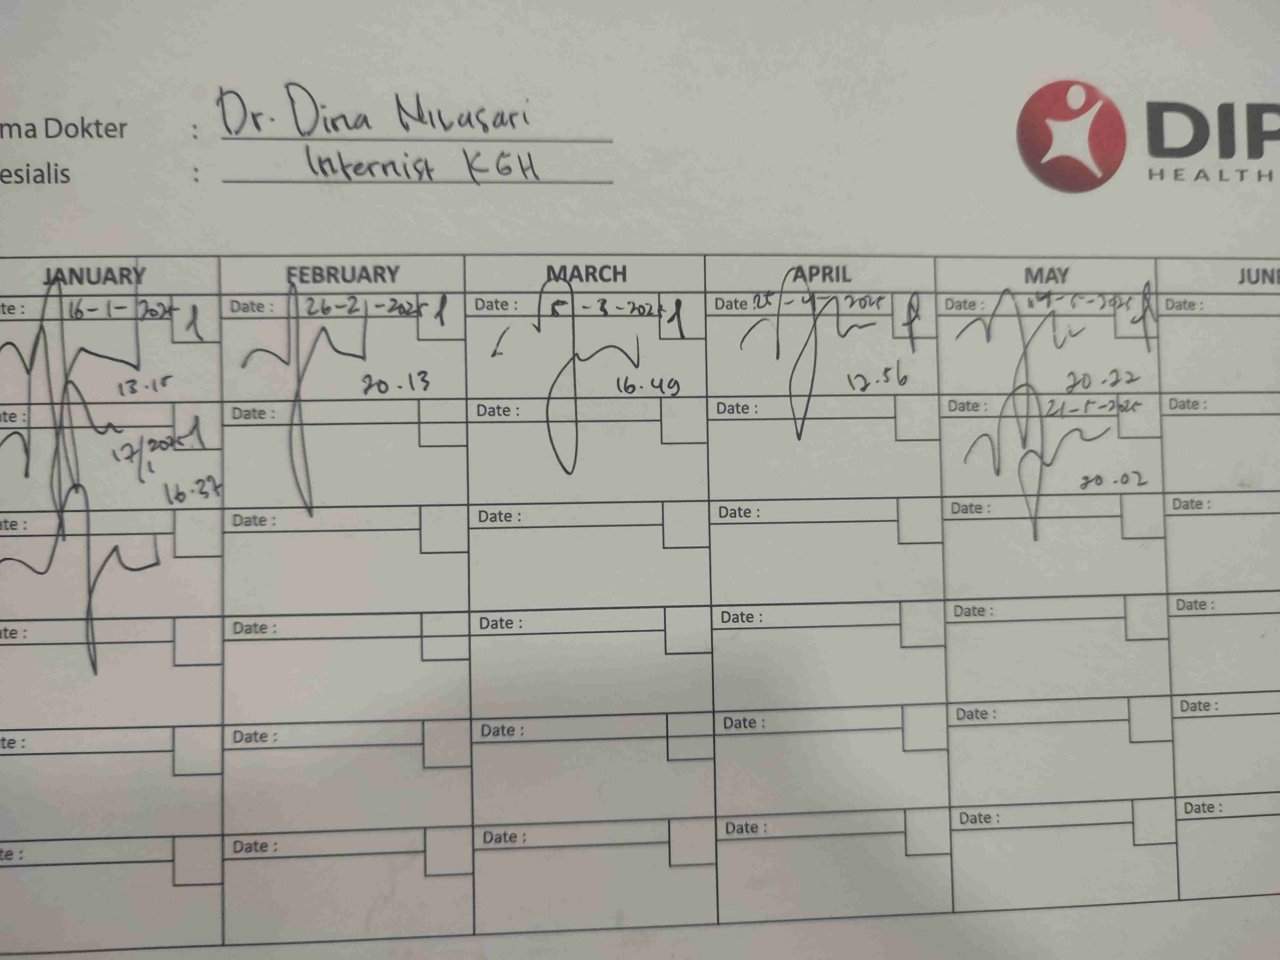 ma Dokter : Dr. Dina Nilasari
esialis : Internist KGH
DIP
HEALTH
JANUARY FEBRUARY MARCH APRIL MAY JUNE
te : 16-1-2025 Date : 26-21-2025 Date : 5-3-2025 Date : 25-4-2025 Date : 14-5-2025 Date :
13.15 20.13 16.49 12.56 20.22
te : Date : Date : Date : Date : 21-5-2025 Date :
17/1 2025
16.37 20.02
te : Date : Date : Date : Date : Date :
te : Date : Date : Date : Date : Date :
te : Date : Date : Date : Date : Date :
te : Date : Date : Date : Date : Date :